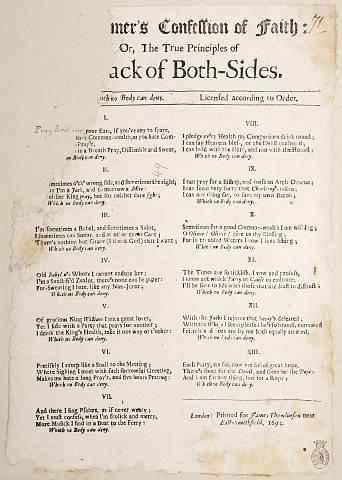 mer's Confession of Faith:
71
Or, The True Principles of
ack of Both-Sides.
uch no Body can deny.
Licensed according to Order.
I.
Pray lend me your Ears, if you've any to spare,
Common-wealth, as you hate Com-
Pray'r,
in a Breath Pray, Dissemble and Swear,
no Body can deny.
II.
Sometimes o'th' wrong side, and sometimes the right;
a Jack, and to morrow a
neither King pray, but for neither care
Which no Body can deny.
III.
I'm sometimes a Rebel, and sometimes a Saint,
I sometimes can Swear, and at other times Cant;
There's nothing but Grace (I think God) that I want;
Which no Body can deny.
IV.
Old Whore I cannot endure her;
I'm a Zealot, there's none can be purer:
For-Swearing I hate, like any Non-Juror;
Which no Body can deny.
V.
Of gracious King William I am a great lover,
Yet I side with a Party that prays for another;
I drink the King's Health, take it one way or t'other:
Which no Body can deny.
VI.
Precisely I creep like a Snail to the Meeting;
Where Sighing I meet with such sorrowful Greeting,
Makes me hate a long Pray'r, and five hours Prating:
Which no Body can deny.
VII.
And there I sing Psalms, as if never weary;
Yet I must confess, when I'm frolick and merry,
More Musick I find in a Boat to the Ferry:
Which no Body can deny.
VIII.
I pledge ev'ry Health my Companions drink round;
I can say Heavens bless, or the Devil confound,
I can hold with the Hare, and run with the Hound;
Which no Body can deny.
IX.
I can pray for a Bishop, and curse an Arch-Deacon;
I can seem very sorry that
I can any thing say, to save my own Bacon;
Which no Body can deny.
X.
Sometimes for a good Common-wealth I am wishing;
O Oliver! Oliver! give us thy Blessing;
For in troubled Waters I now love fishing;
Which no Body can deny.
XI.
The Times are so ticklish, I vow and profess,
I know not which Party or Cause to embrace,
I'll be sure to side with those that are least in distress:
Which no Body can deny.
XII.
With the Jacks I rejoice that Savoy's defeated;
With the Whigs I seem pleased he's so retreated
Friends and Foes are by me both equally treated,
Which no Body can deny.
XIII.
Each Party, you see, now are full of great hope,
There's some for the Devil, and some for the Pope;
And I am for any thing, but for a Rope;
Which no Body can deny.
London: Printed for James Thomlinson near
East-Smithfield, 1694.